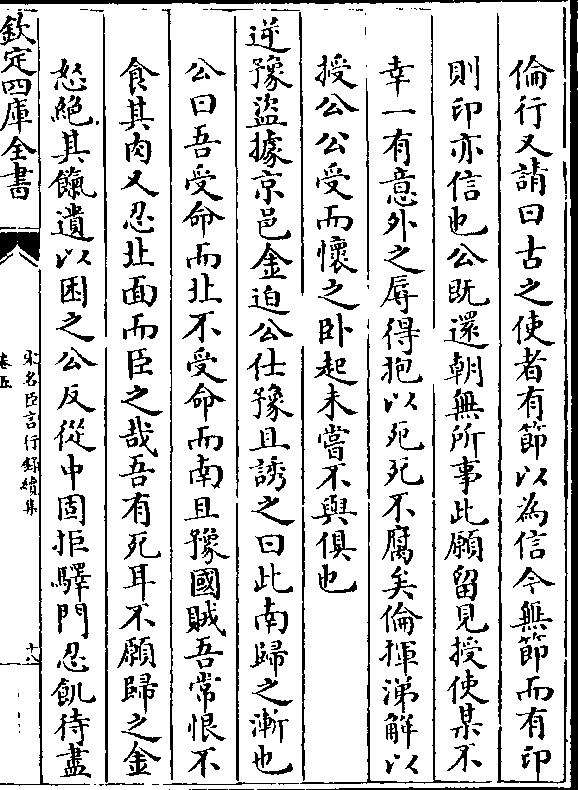 倫行又請曰古之使者有節以為信今無節而有印
則印亦信也公既還朝無所事此願留見授使某不
幸一有意外之辱得抱以死死不腐矣倫揮涕解以
授公公受而懷之卧起未嘗不與俱也
逆豫盜據京邑金迫公仕豫且誘之曰此南歸之漸也
公曰吾受命而北不受命而南且豫國賊吾常恨不
食其肉又忍北面而臣之哉吾有死耳不願歸之金
怒絶其餼遺以困之公反從中固拒驛門忍飢待盡
欽定四庫全書
宋名臣言行録續集
卷五
十八